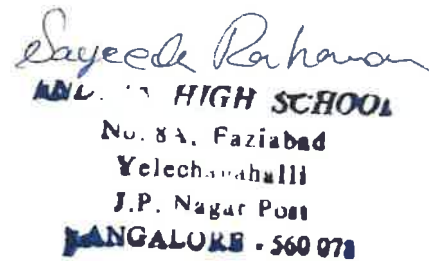 Sayeeda Rahaman
HIGH SCHOOL
No. 8A, Faziabad
Yelechanahalli
J.P. Nagar Post
BANGALORE - 560 078